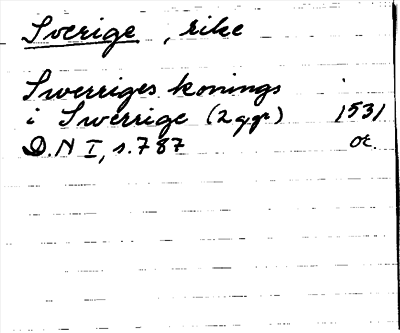 Sverige, rike
Swerriges konings
i Swerrige (2 ggr) 1531
D.N I, s. 787 or.